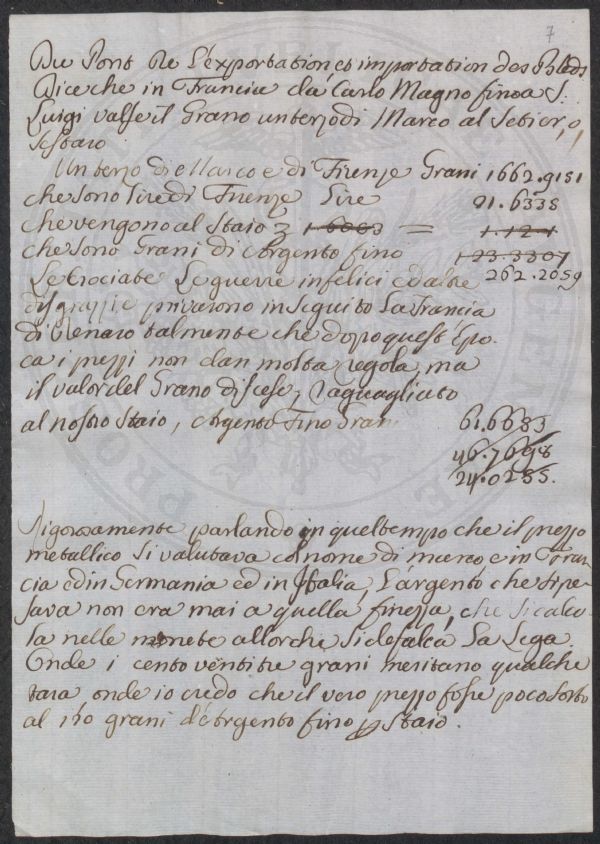 7
Du Pont De L'exportation et importation des Bleds
Dice che in Francia da Carlo Magno fino a S.
Luigi valse il Grano un terzo di Marco al Setier, o
Sestaro
Un terzo di Marco e di Firenze Grani 1662.9151
che sono lire di Firenze Lire 21.6338
che vengono al Staio = 1.121
che sono Grani di Argento fino 123.3207
Le Crociate Le guerre infelici ed altre 262.2059
disgrazzie privarono in seguito La Francia
di Denaro talmente che dopo quest' Epo-
ca i prezzi non dan molta regola, ma
il valor del Grano discese, ragguagliato
al nostro Staio, Argento Fino Grani 61.6683
46.7698
24.0255.
Rigorosamente parlando in quel tempo che il prezzo
metallico si valutava col nome di marco, e in Fran
cia ed in Germania ed in Italia, L'argento che si pe
sava non era mai a quella finezza, che si calco
la nelle monete allorche si defalca La Lega.
Onde i cento ventitre grani meritano qualche
tara onde io credo che il vero prezzo fosse poco sotto
al 110 grani d'Argento fino p Staio.